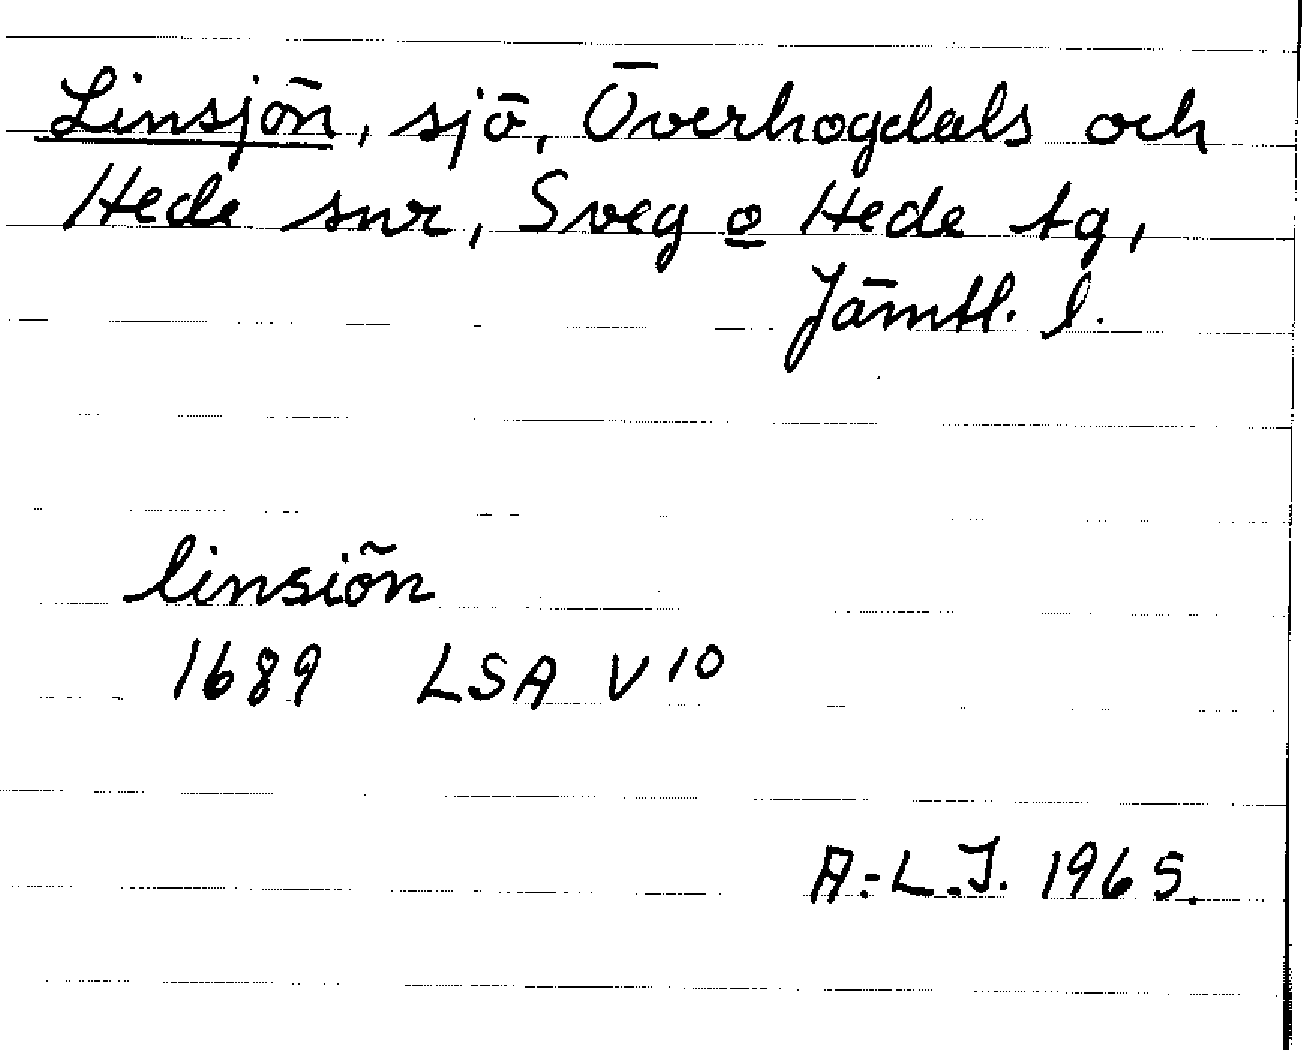 Linsjön, sjö, Överhogdals och
Hede snr, Sveg o Hede tg,
Jämtl. l.
linsiön
1689 LSA V 10
A:-L.J. 1965.